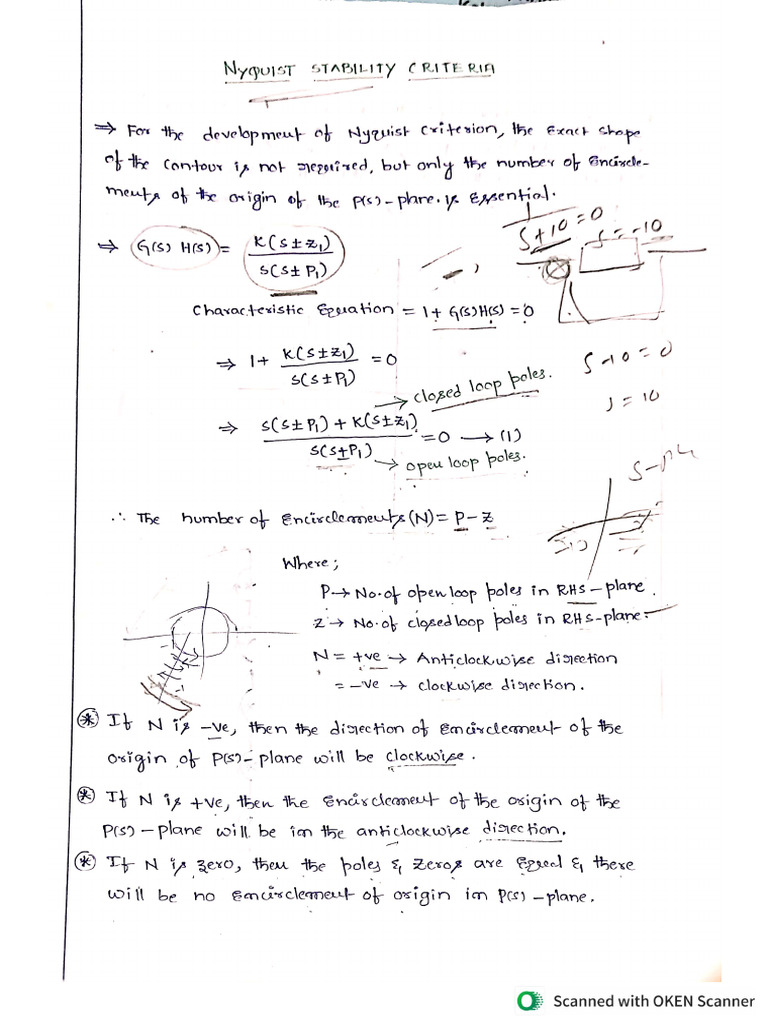 NYQUIST STABILITY CRITERIA
⇒ For the development of Nyquist Criterion, the Exact shape
of the contour is not required, but only the number of Encircle-
ments of the origin of the P(s)-plane. is Essential.
S+10=0
S=-10
⇒ G(s) H(s) = K(s±z₁) / s(s±P₁)
Characteristic Equation = 1+ G(s)H(s) = 0
⇒ 1+ K(s±z₁) / s(s±P₁) = 0
S-10=0
s = 10
→ closed loop poles.
⇒ s(s±P₁) + K(s±z₁) / s(s±P₁) = 0 → (1)
→ open loop poles.
∴ The number of Encirclements (N) = P-Z
Where;
P → No. of open loop poles in RHS-plane.
Z → No. of closed loop poles in RHS-plane.
N = +ve → Anticlockwise direction
= -ve → clockwise direction.
* If N is -ve, then the direction of encirclement of the
origin of P(s)-plane will be clockwise.
* If N is +ve, then the Encirclement of the origin of the
P(s)-plane will be in the anticlockwise direction.
* If N is zero, then the poles & zeros are Equal & there
will be no encirclement of origin in P(s)-plane.
Scanned with OKEN Scanner